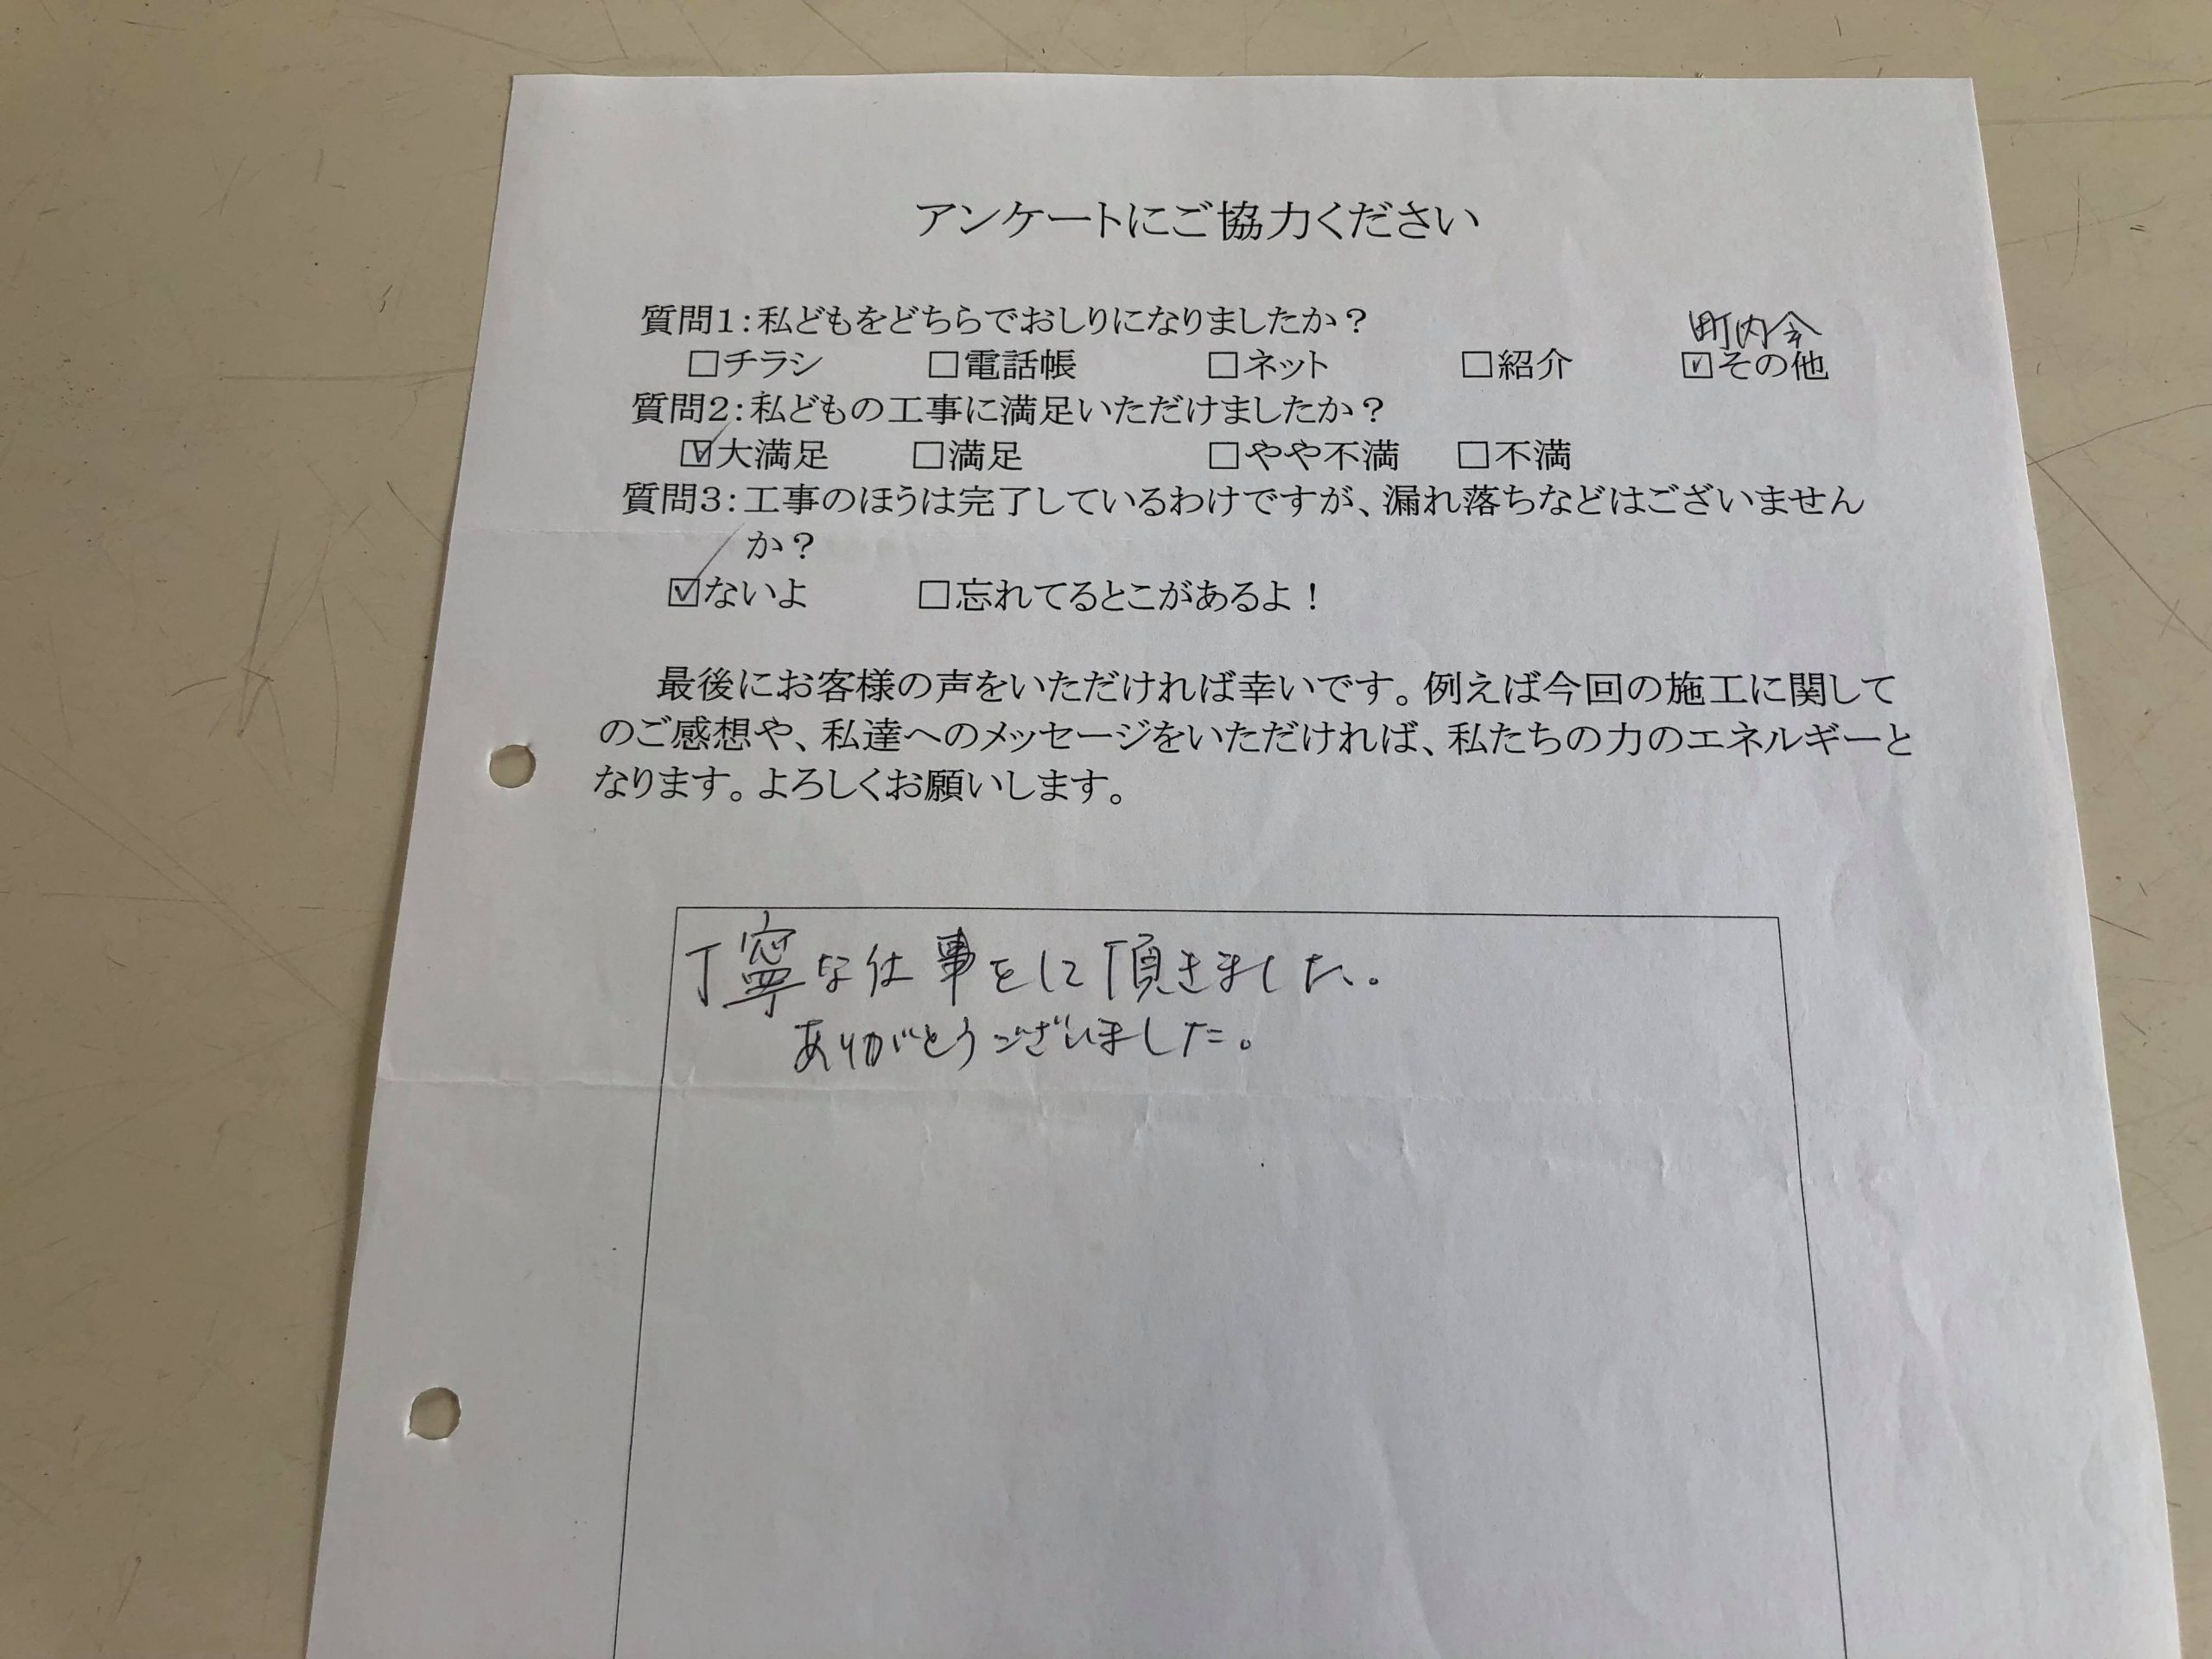 アンケートにご協力ください
質問1:私どもをどちらでおしりになりましたか?
町内会
□チラシ □電話帳 □ネット □紹介 ☑その他
質問2:私どもの工事に満足いただけましたか?
☑大満足 □満足 □やや不満 □不満
質問3:工事のほうは完了しているわけですが、漏れ落ちなどはございません
か?
☑ないよ □忘れてるとこがあるよ!
最後にお客様の声をいただければ幸いです。例えば今回の施工に関して
のご感想や、私達へのメッセージをいただければ、私たちの力のエネルギーと
なります。よろしくお願いします。
丁寧な仕事をして頂きました。
ありがとうございました。